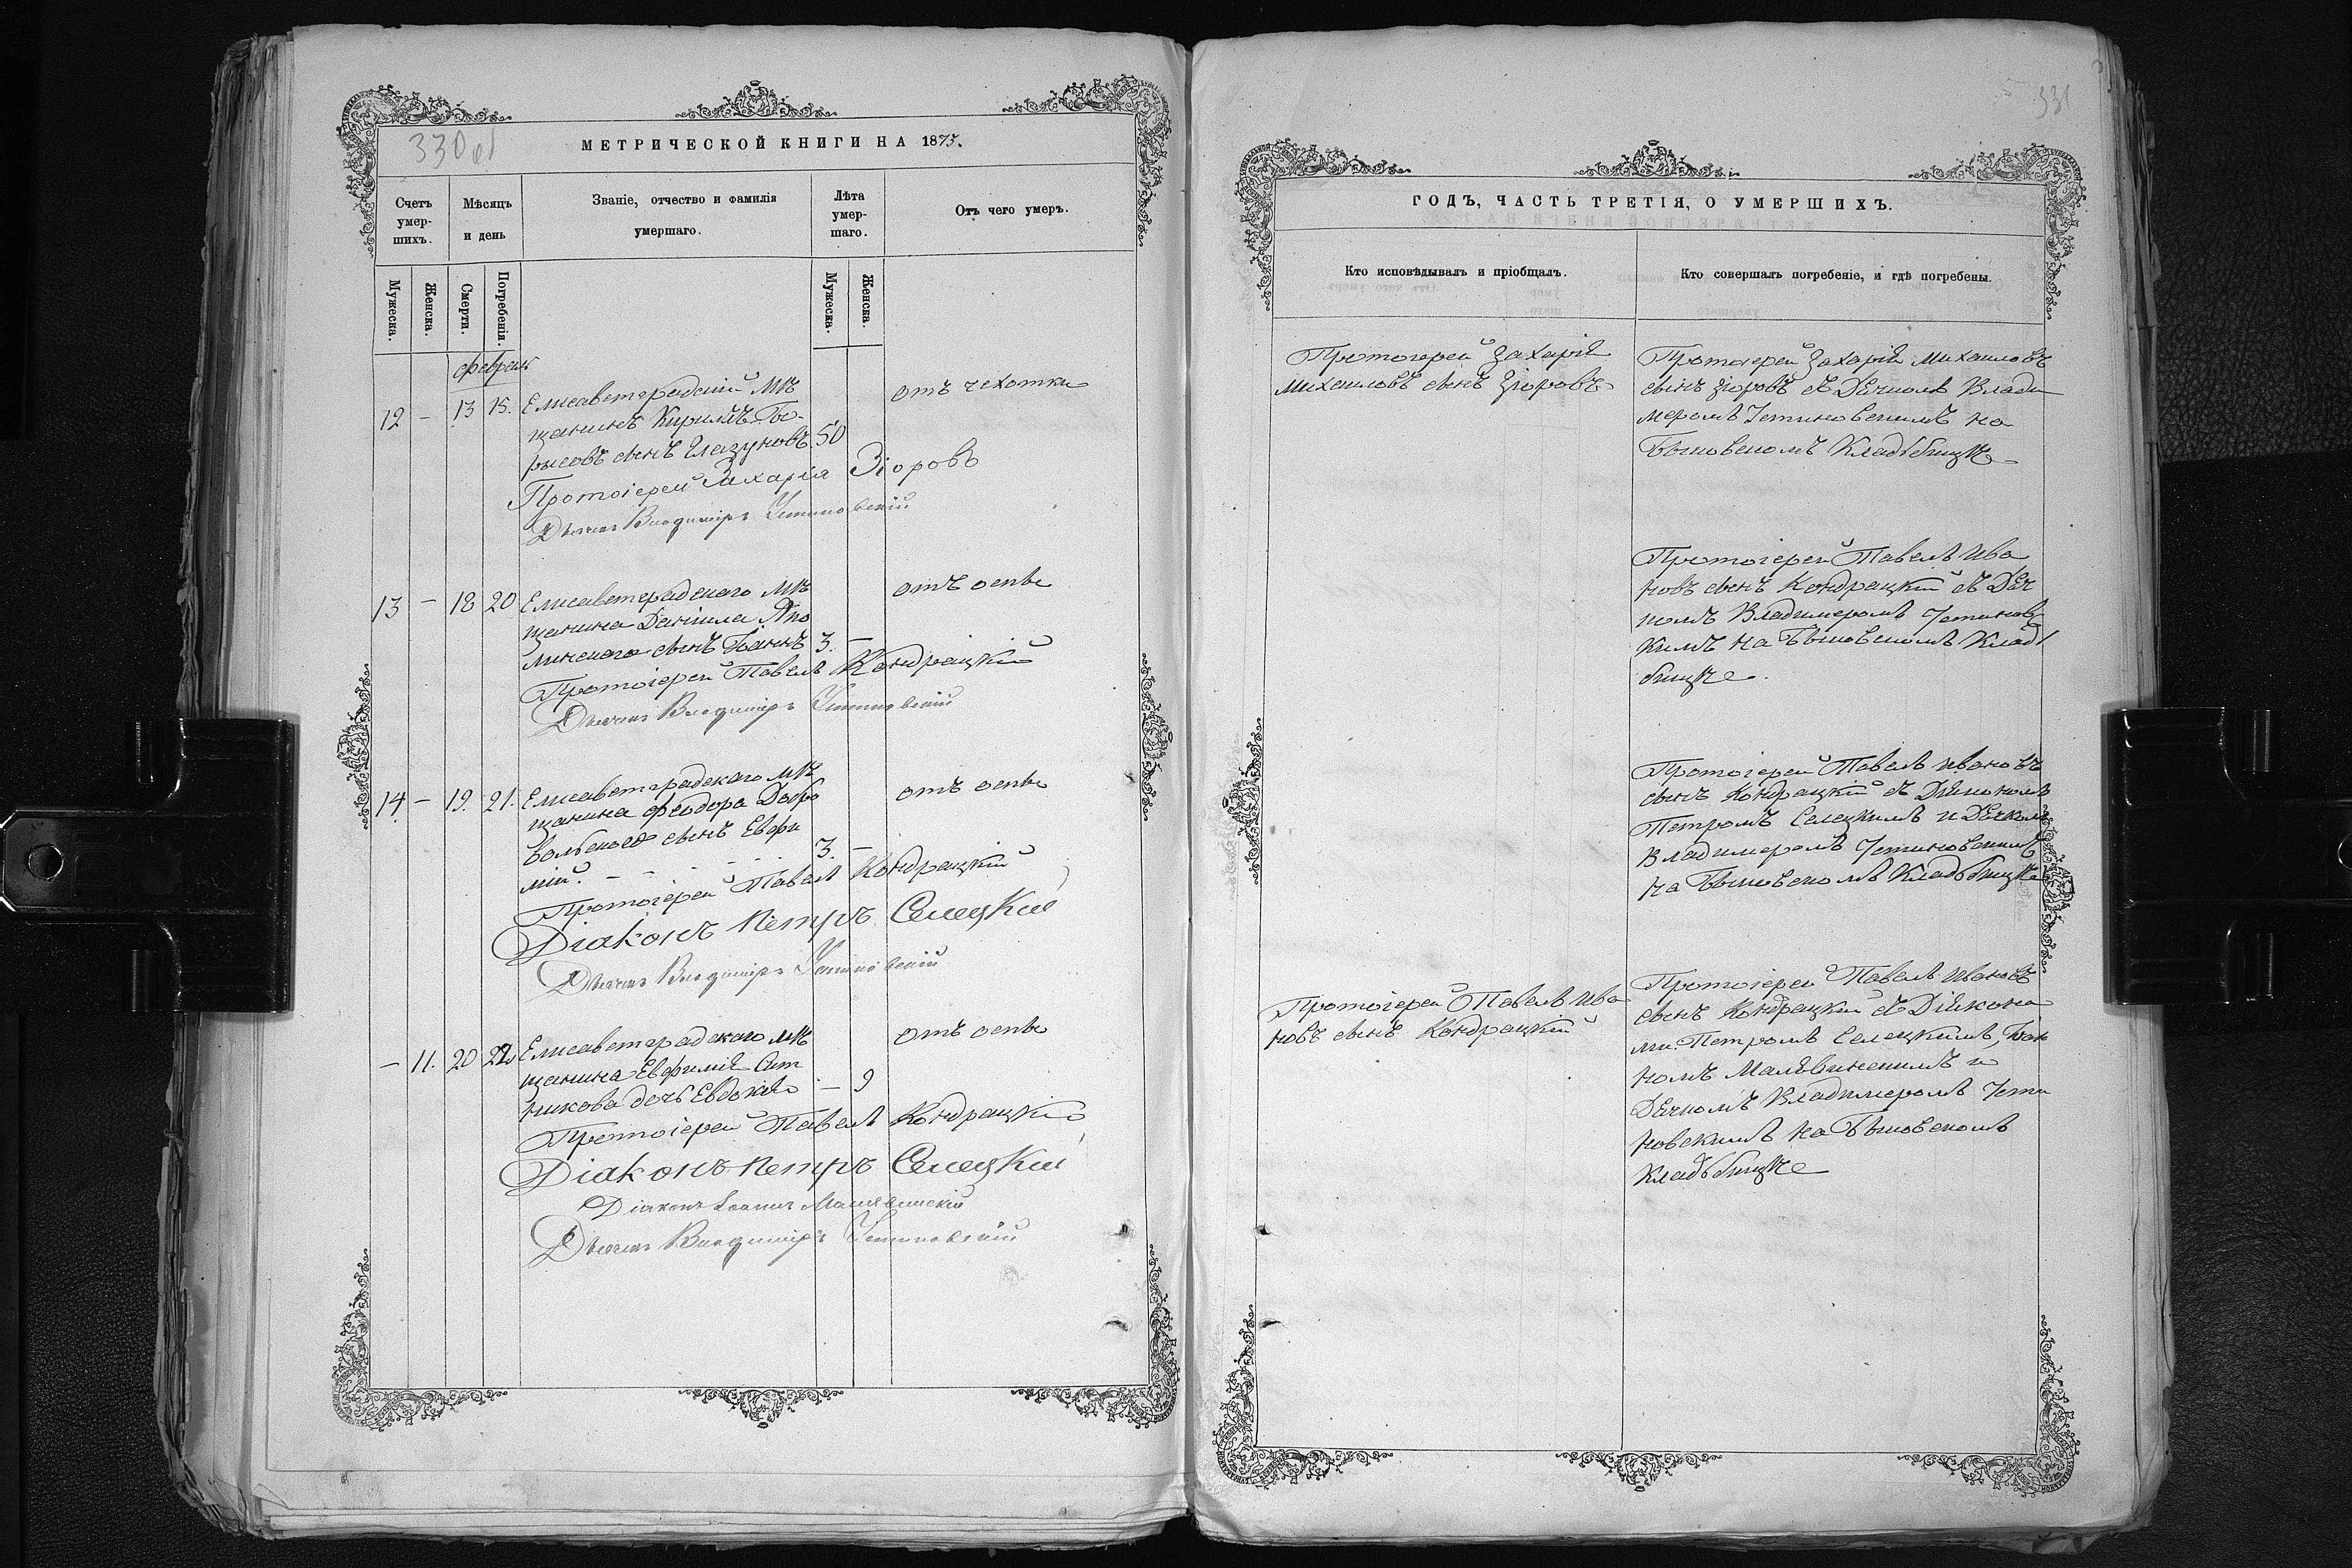 330 об
МЕТРИЧЕСКОЙ КНИГИ НА 1875.
Счетъ умершихъ.
Мѣсяцъ и день
Званіе, отчество и фамилія умершаго.
Лѣта умершаго.
Отъ чего умеръ.
Мужеска.
Женска.
Смерти.
Погребенія.
Мужеска.
Женска.
февраль
12 – 13 15. Елисаветградскій мѣ
щанинъ Кирилъ Бо-
рисовъ сынъ Глазуновъ 50
отъ чахотки
Протоіерей Захарія Зіоровъ
Дьячекъ Владиміръ Устиновскій
13 – 18 20 Елисаветградскаго мѣ
щанина Даніила Япо
линскаго сынъ Іоаннъ 3. –
отъ оспы
Протоіерей Павелъ Кондрацкій
Дьячекъ Владиміръ Устиновскій
14 – 19. 21. Елисаветградскаго мѣ
щанина Феодора Добро
вольскаго сынъ Евфи
мій. – – – – 3. –
отъ оспы
Протоіерей Павелъ Кондрацкій
Діаконъ Петръ Селецкій
Дьячекъ Владиміръ Устиновскій
– 11. 20 22 Елисаветградскаго мѣ
щанина Евфимія Сит
никова дочь Евдокія – 9
отъ оспы
Протоіерей Павелъ Кондрацкій
Діаконъ Петръ Селецкій
Діаконъ Іоаннъ Малявинскій
Дьячекъ Владиміръ Устиновскій
331
ГОДЪ, ЧАСТЬ ТРЕТІЯ, О УМЕРШИХЪ.
Кто исповѣдывалъ и пріобщалъ.
Кто совершалъ погребеніе, и гдѣ погребены.
Протоіерей Захарій
Михаиловъ сынъ Зіоровъ
Протоіерей Захарій Михаиловъ
сынъ Зіоровъ съ Дячкомъ Влади
меромъ Устиновскимъ на
Быковскомъ Кладбищѣ
Протоіерей Павелъ Ива
новъ сынъ Кондрацкій съ Дяч
комъ Владимеромъ Устиновс
кимъ на Быковскомъ Клад
бищѣ.
Протоіерей Павелъ Ивановъ
сынъ Кондрацкій съ Діякономъ
Петромъ Селецкимъ и Дячкомъ
Владимеромъ Устиновскимъ
на Быковскомъ Кладбищѣ
Протоіерей Павелъ Ива
новъ сынъ Кондрацкій
Протоіерей Павелъ Ивановъ
сынъ Кондрацкій съ Діякона
ми. Петромъ Селецкимъ, Іоан
номъ Малявинскимъ и
Дячкомъ Владимеромъ Усти
новскимъ на Быковскомъ
Кладбищѣ